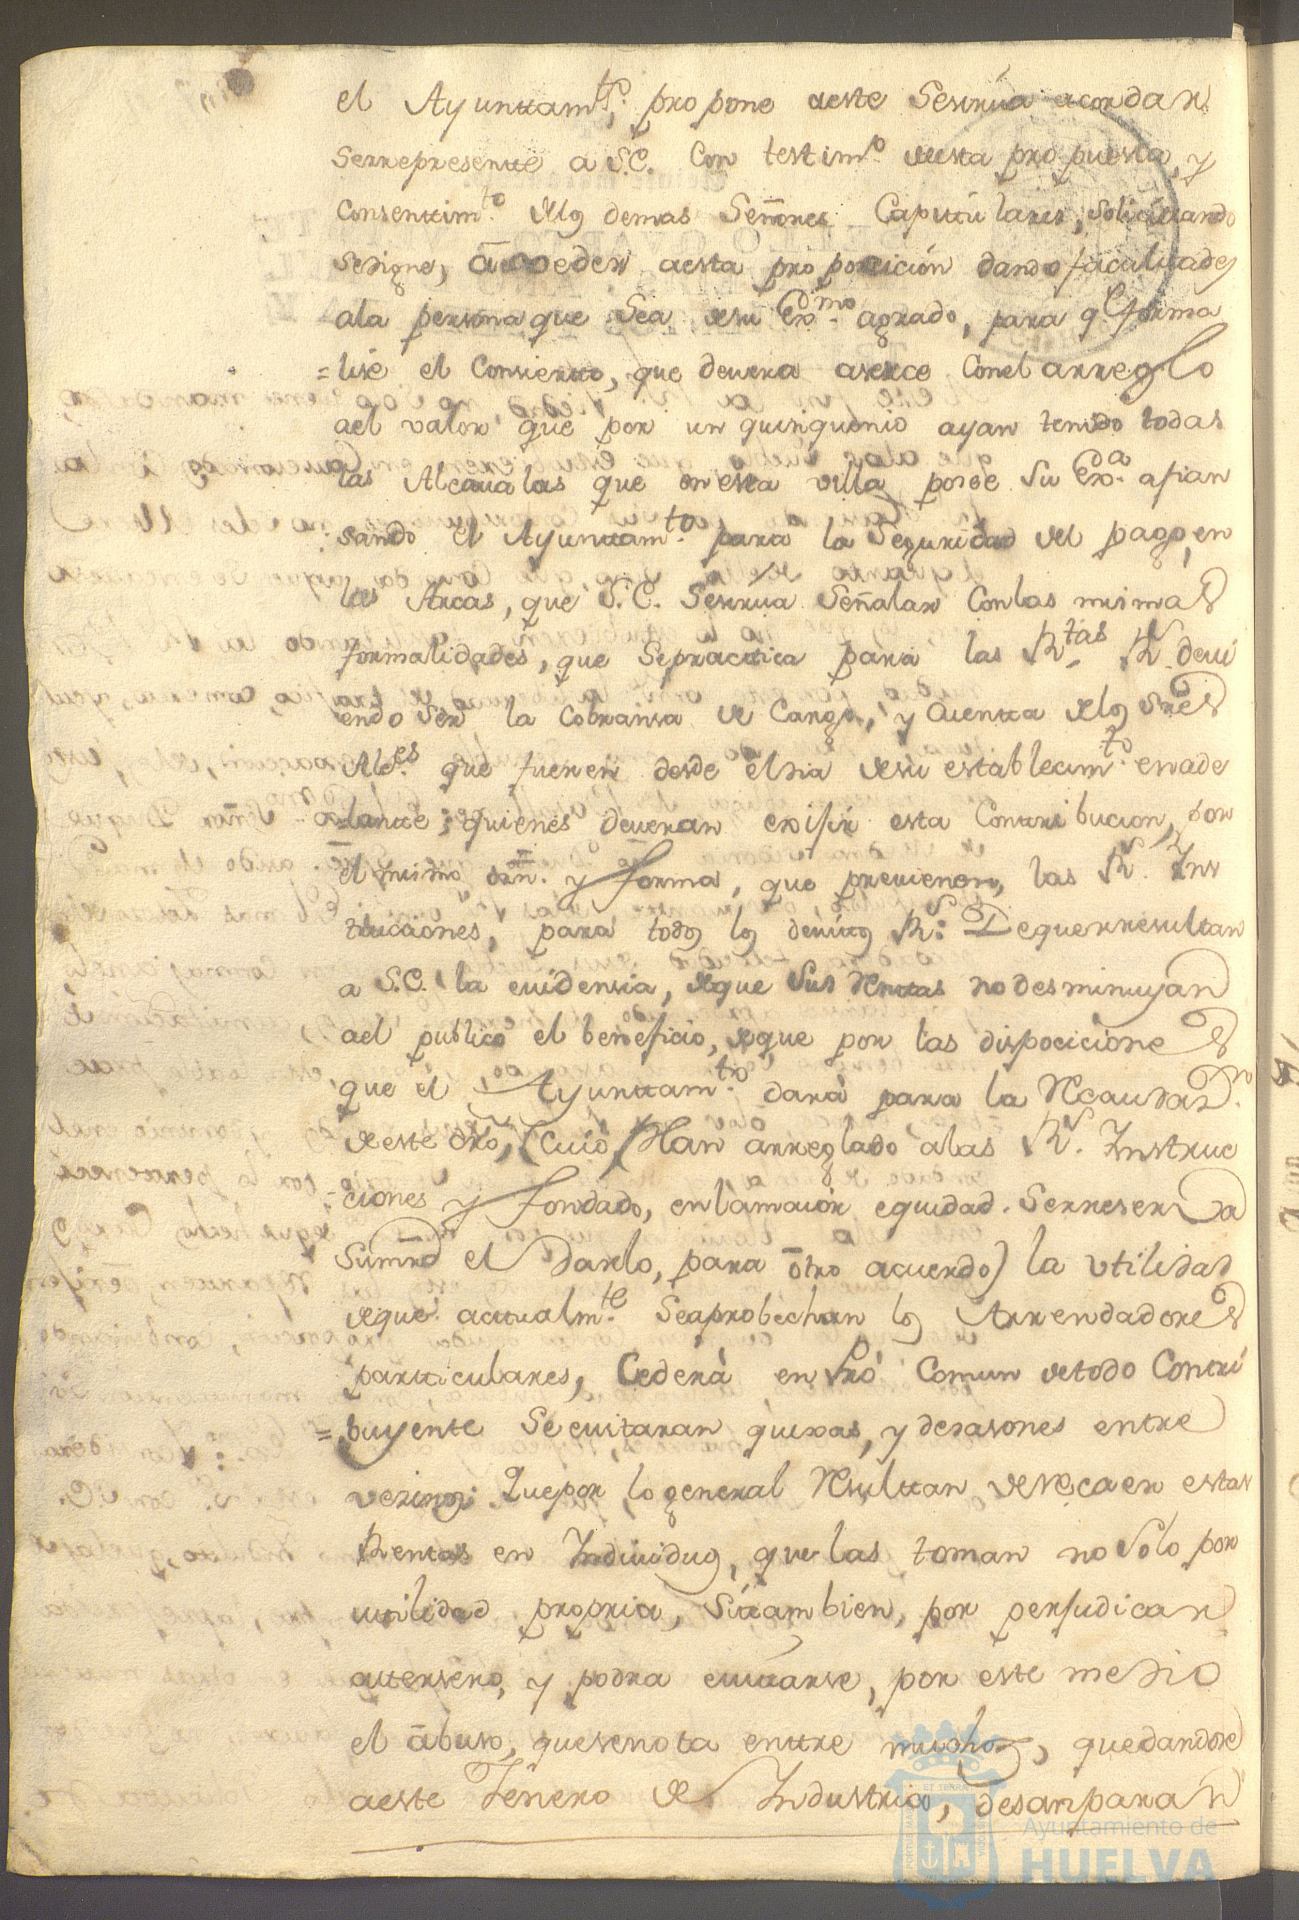 el Ayunttam.to propone aeste Sesirua acordar
Serrepresente a S.E. Con testim.o deesta propuesta, y
Consentim.to delos demas Señores Capitulares, Solicitando
Sedigne, acceder aesta proposición dando facultades
ala persona que Sea desu Ex.mo agrado, para q.e forma
=lise el Consierto, que devera aserce Conel arreglo
ael valor que por un quinquenio ayan tenido todas
las Alcavalas que en esta villa posee Su Ex.a afian
sando el Ayunttam.to para la Seguridad del pago, en
las Arcas, que S.E. Sesirua Señalar Conlas mismas
formalidades, que Sepractica para las R.tas R.s devi
endo Ser la Cobransa de Cargo, y Cuenta delos Sres
Alc.es que fueren desde eldia desu establecim.to enade
=lante; quienes deveran exijir esta Contribucion, por
el mismo orn. y forma, que previenen, las R.s Ins
trucciones, para todos los devitos R.s: Dequerresultan
a S.E. la evidensia, deque Sus Rentas nodesminuyan
ael publico el beneficio, deque por las dispociciones
que el Ayunttam.to dará para la Recaudaz.n
deeste dro, (Cuio Plan arreglado alas R.s Instruc
=ciones y fondado, enlamaior equidad. Serreserva
Sumrd el Darlo, para otro acuerdo) la vtilidad
deque actualm.te Seaprobechan los Arrendadores
particulares, Cederá en Pró Comun detodo Contri
=buyente Seevitaran quexas, y desasones entre
vezinos: Quepor lo general Resultan derecaer estas
Rentas en Individuos, que las toman no Solo por
utilidad propria, Sitambien, por perjudicar
atersero, y podra evitarse, por este medio
el abuso, quesenota entre muchos, quedandose
aeste Jenero de Industria, desanparan
Ayuntamiento de
HUELVA